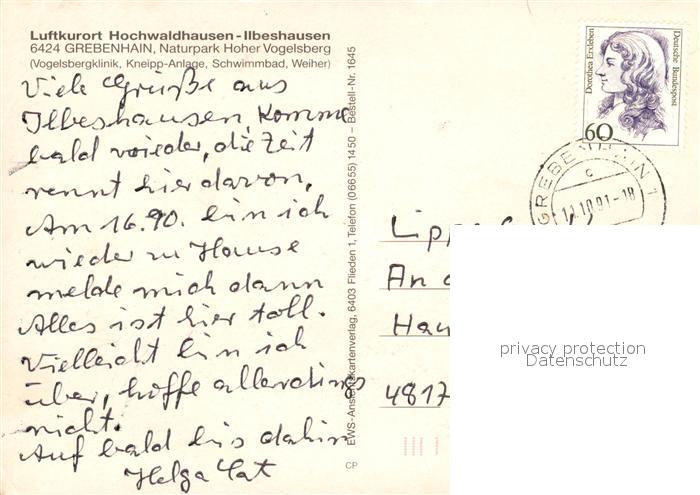 Luftkurort Hochwaldhausen-Ilbeshausen
6424 GREBENHAIN, Naturpark Hoher Vogelsberg
(Vogelsbergklinik, Kneipp-Anlage, Schwimmbad, Weiher)
Viele Grüße aus
Ilbeshausen Komme
bald wieder, die Zeit
rennt hier davon,
Am 16.90. bin ich
wieder zu Hause
melde mich dann
Alles ist hier toll.
Vielleicht bin ich
über, hoffe allerdings
nicht.
Auf bald bis dahin
Helga
EWS-Ansichtskartenverlag, 6403 Flieden 1, Telefon (06655) 1450 – Bestell-Nr. 1645
CP
Dorothea Erxleben
Deutsche Bundespost
60
GREBENHAIN 1
c
11.10.91-18
Lipp
An d
Hau
4817
privacy protection
Datenschutz